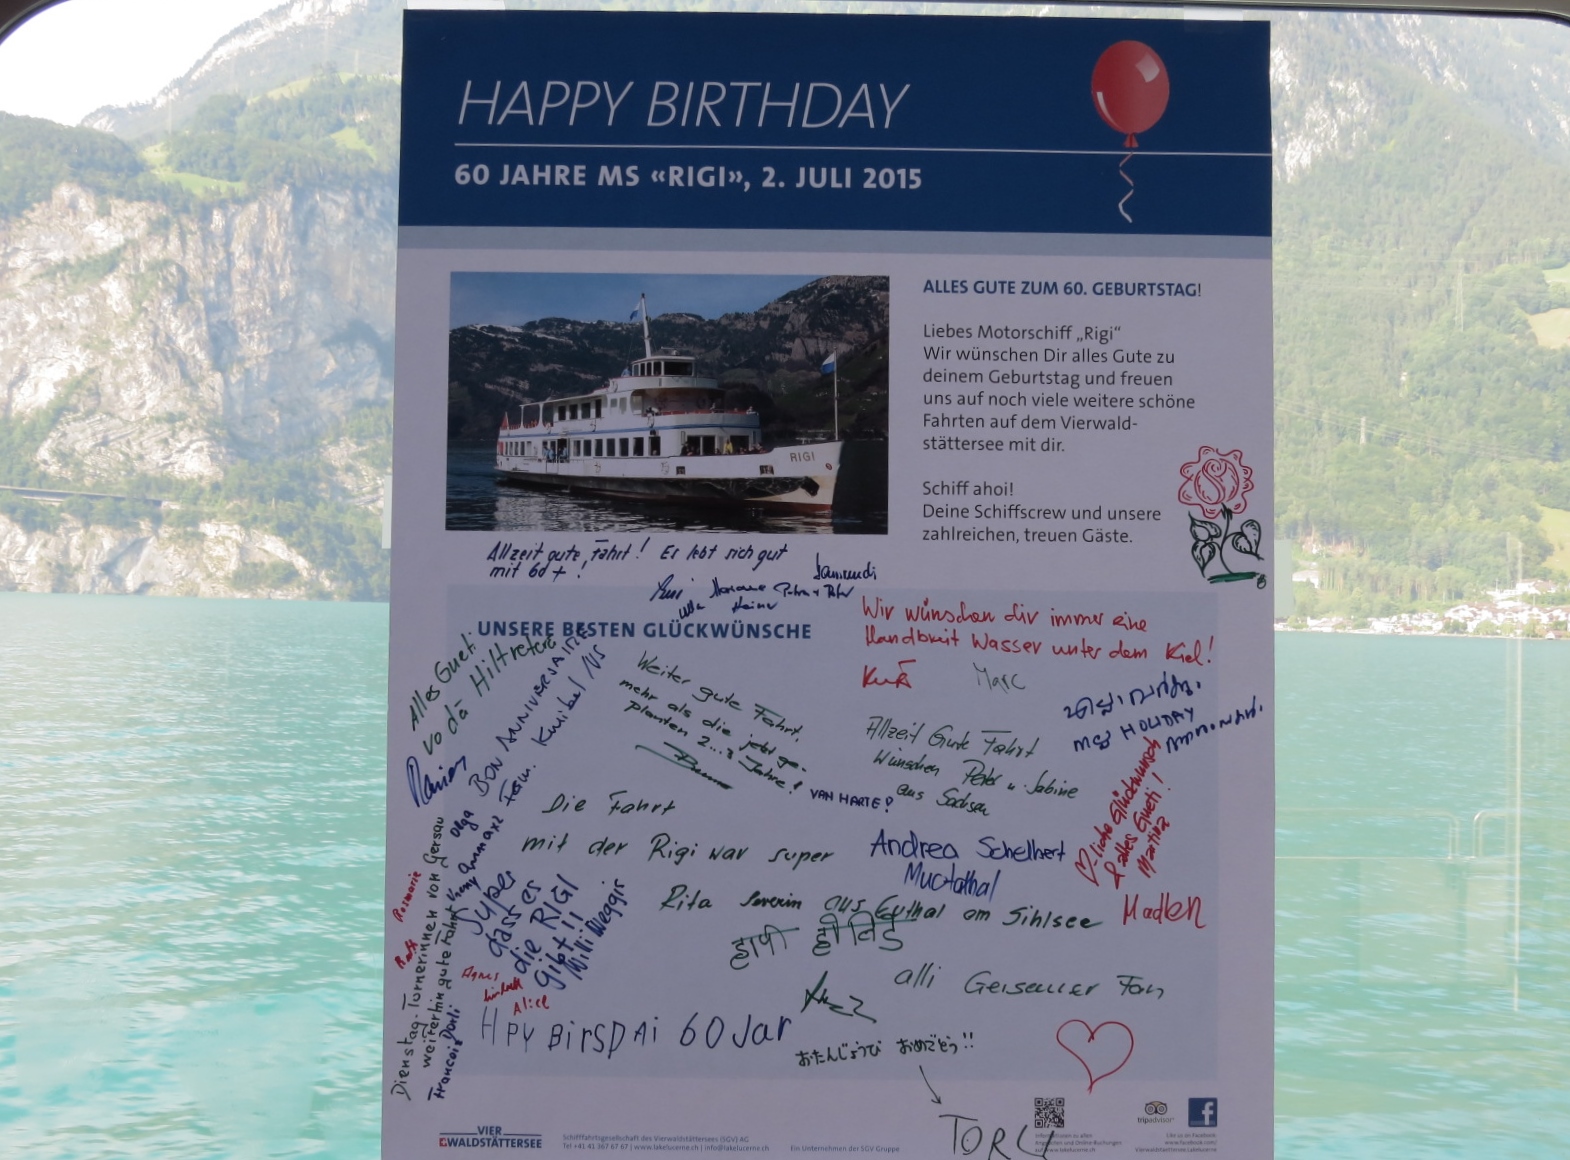 HAPPY BIRTHDAY
60 JAHRE MS «RIGI», 2. JULI 2015
RIGI
ALLES GUTE ZUM 60. GEBURTSTAG!
Liebes Motorschiff „Rigi“
Wir wünschen Dir alles Gute zu
deinem Geburtstag und freuen
uns auf noch viele weitere schöne
Fahrten auf dem Vierwald-
stättersee mit dir.
Schiff ahoi!
Deine Schiffscrew und unsere
zahlreichen, treuen Gäste.
Allzeit gute Fahrt! Es lebt sich gut
mit 60+!
Heiner
UNSERE BESTEN GLÜCKWÜNSCHE
Wir wünschen dir immer eine
Handbreit Wasser unter dem Kiel!
Kurt
Marc
Alles Gueti
vo dä
BON ANNIVERSAIRE
Weiter gute Fahrt,
mehr als die jetzt ge-
planten 2...3 Jahre!
VAN HARTE!
Allzeit Gute Fahrt
Wünschen Peter u. Sabine
aus Sachsen
HOLIDAY
♡-liche Glückwunsch
& alles Gueti!
Martina
Die Fahrt
mit der Rigi war super
Andrea Schelbert
Muotathal
Rita Severin aus Euthal am Sihlsee
Madlen
हापी
alli Gersauer Fan
Olga
Rosmarie
Ruth
Dienstag-Turnerinnen von Gersau
weiterhin gute Fahrt
Super
dass es
die RIGI
gibt!!
Willi Weggis
Agnes
Alice
HPY BirSDAi 60 Jar
おたんじょうび おめでとう!!
VIER
WALDSTÄTTERSEE
Schifffahrtsgesellschaft des Vierwaldstättersees (SGV) AG
Tel +41 41 367 67 67 | www.lakelucerne.ch | info@lakelucerne.ch
Ein Unternehmen der SGV Gruppe
tripadvisor
Like us on Facebook
www.facebook.com/